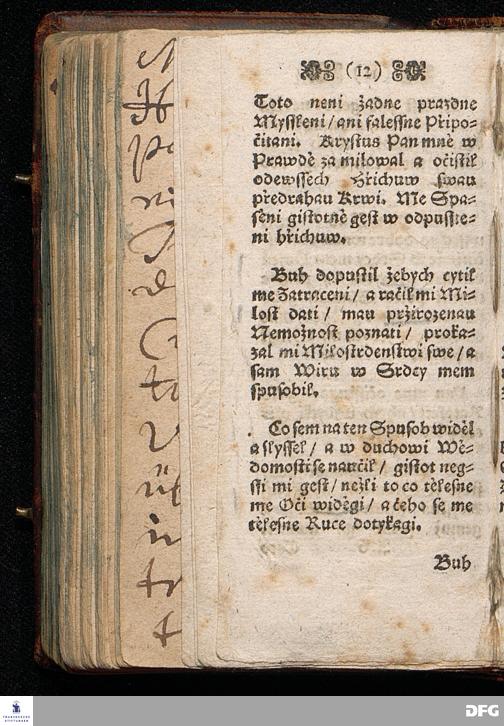 (12)
Toto neni žadne prazdne
Mysſleni / ani faleſſne Připo-
čitani. Kryſtus Pan mně w
Prawdě zamilowal a očiſtil
odewſſech Hřichuw ſwau
předrahau Krwi. Me Spa-
ſeni giſtotně geſt w odpuſſte-
ni hřichuw.
Buh dopuſtil žebych cytil
me Zatraceni / a račil mi Mi-
loſt dati / mau přzirozenau
Nemožnoſt poznati / proka-
zal mi Miloſrdenſtwi ſwe / a
ſam Wiru w Srdcy mem
ſpuſobil.
Co ſem na ten Spuſob widěl
a ſlyſſel / a w duchowi Wě-
domoſti ſe naučil / giſtot neg-
ſſi mi geſt / nežli to co těleſne
me Oči widěgi / a čeho ſe me
těleſne Ruce dotykagi.
Buh
DFG